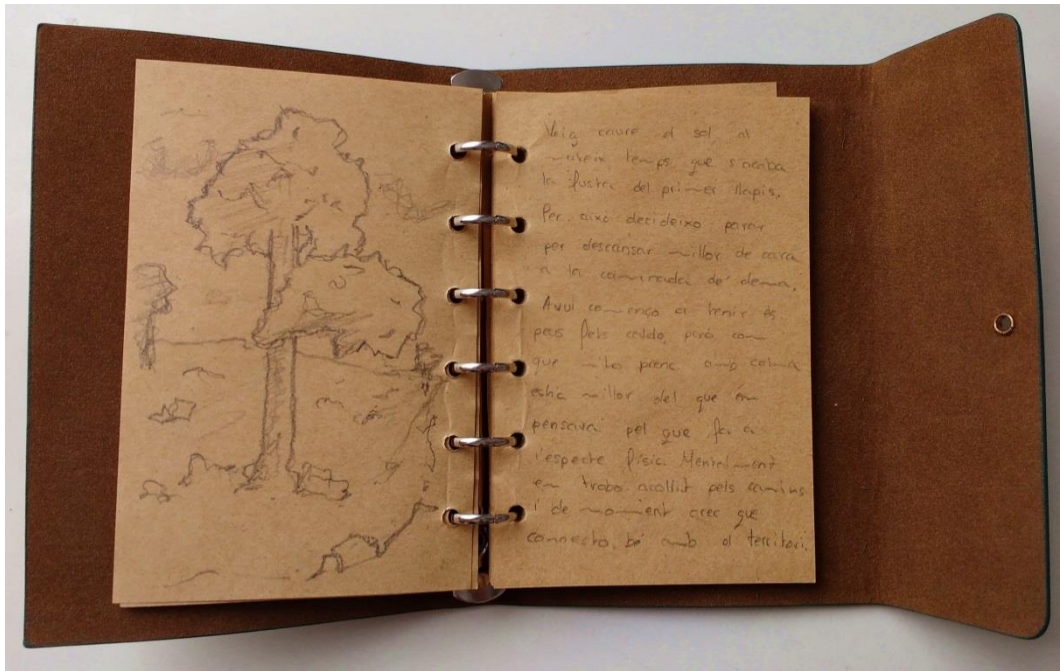 Veig caure el sol, al
mateix temps que s'acaba
la fusta del primer llapis.
Per això decideixo parar
per descansar millor de cara
a la caminada de demà.
Avui començo a tenir els
peus fets caldo, però com
que m'ho prenc amb calma
estic millor del que em
pensava pel que fa a
l'aspecte físic. Mentalment
em trobo acollit pels camins
i de moment crec que
connecto bé amb el territori.